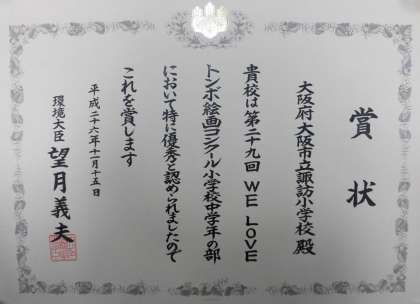 賞状
大阪府大阪市立諏訪小学校 殿
貴校は第二十九回 WE LOVE
トンボ絵画コンクール小学校中学年の部
において特に優秀と認められましたので
これを賞します
平成二十六年十一月十五日
環境大臣 望月義夫